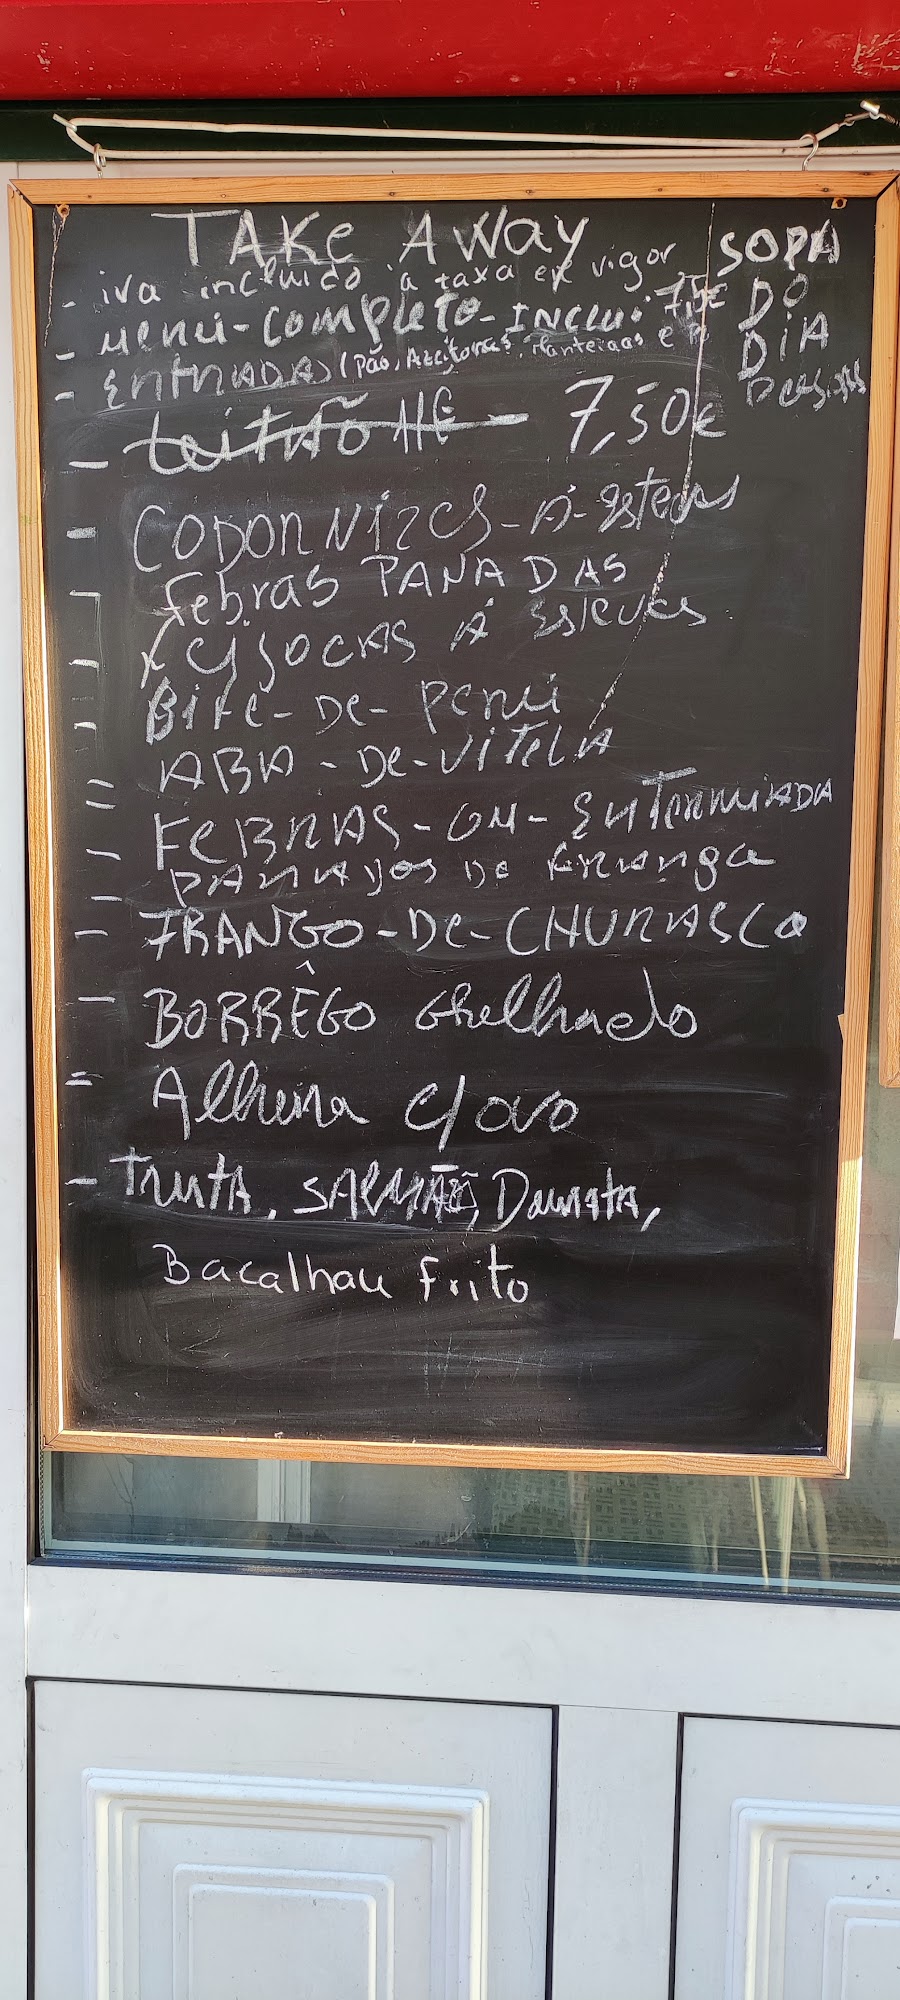 TAKE AWAY
- iva incluido à taxa em vigor
- MENÚ-COMPLETO-INCLUI 7,5€
- ENTRADA (Pão, Azeitonas, Manteigas e
SOPA
DO
DIA
- Leitão 7,50€
- CODORNIZES-À-Esteves
- febras PANADAS
- À Esteves
- BIFE-DE-PERÚ
= ABA-DE-VITELA
- FEBRAS-EM-
- PANADOS DE Frango
- FRANGO-DE-CHURASCO
- BORRÊGO Grelhado
= Alheira c/ ovo
- TRUTA, SALMÃO, Dourata,
Bacalhau frito